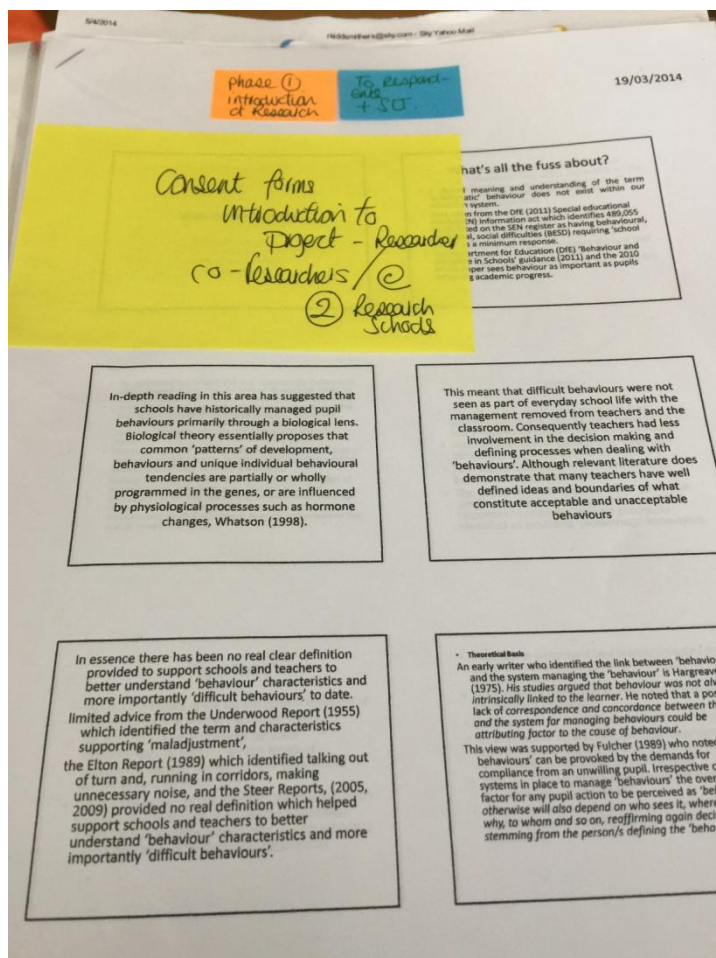 5/4/2014
- Sky Yahoo Mail
19/03/2014
Phase ①
introduction
of Research
To Respond-
ents
+ SCT.
Consent forms
introduction to
Project - Researcher
co-Researchers / @
② Research
Schools
hat's all the fuss about?
meaning and understanding of the term
atic' behaviour does not exist within our
system.
n from the DfE (2011) Special educational
EN) Information act which identifies 489,055
ed on the SEN register as having behavioural,
al, social difficulties (BESD) requiring 'school
a minimum response.
artment for Education (DfE) 'Behaviour and
e in Schools' guidance (2011) and the 2010
per sees behaviour as important as pupils
g academic progress.
In-depth reading in this area has suggested that
schools have historically managed pupil
behaviours primarily through a biological lens.
Biological theory essentially proposes that
common 'patterns' of development,
behaviours and unique individual behavioural
tendencies are partially or wholly
programmed in the genes, or are influenced
by physiological processes such as hormone
changes, Whatson (1998).
This meant that difficult behaviours were not
seen as part of everyday school life with the
management removed from teachers and the
classroom. Consequently teachers had less
involvement in the decision making and
defining processes when dealing with
'behaviours'. Although relevant literature does
demonstrate that many teachers have well
defined ideas and boundaries of what
constitute acceptable and unacceptable
behaviours
In essence there has been no real clear definition
provided to support schools and teachers to
better understand 'behaviour' characteristics and
more importantly 'difficult behaviours', to date.
limited advice from the Underwood Report (1955)
which identified the term and characteristics
supporting 'maladjustment',
the Elton Report (1989) which identified talking out
of turn and, running in corridors, making
unnecessary noise, and the Steer Reports, (2005,
2009) provided no real definition which helped
support schools and teachers to better
understand 'behaviour' characteristics and more
importantly 'difficult behaviours'.
• Theoretical Basis
An early writer who identified the link between 'behavio
and the system managing the 'behaviour' is Hargreave
(1975). His studies argued that behaviour was not alw
intrinsically linked to the learner. He noted that a pos
lack of correspondence and concordance between th
and the system for managing behaviours could be
attributing factor to the cause of behaviour.
This view was supported by Fulcher (1989) who noted
behaviours' can be provoked by the demands for
compliance from an unwilling pupil. Irrespective o
systems in place to manage 'behaviours' the over
factor for any pupil action to be perceived as 'be
otherwise will also depend on who sees it, where
why, to whom and so on, reaffirming again deci
stemming from the person/s defining the 'beha